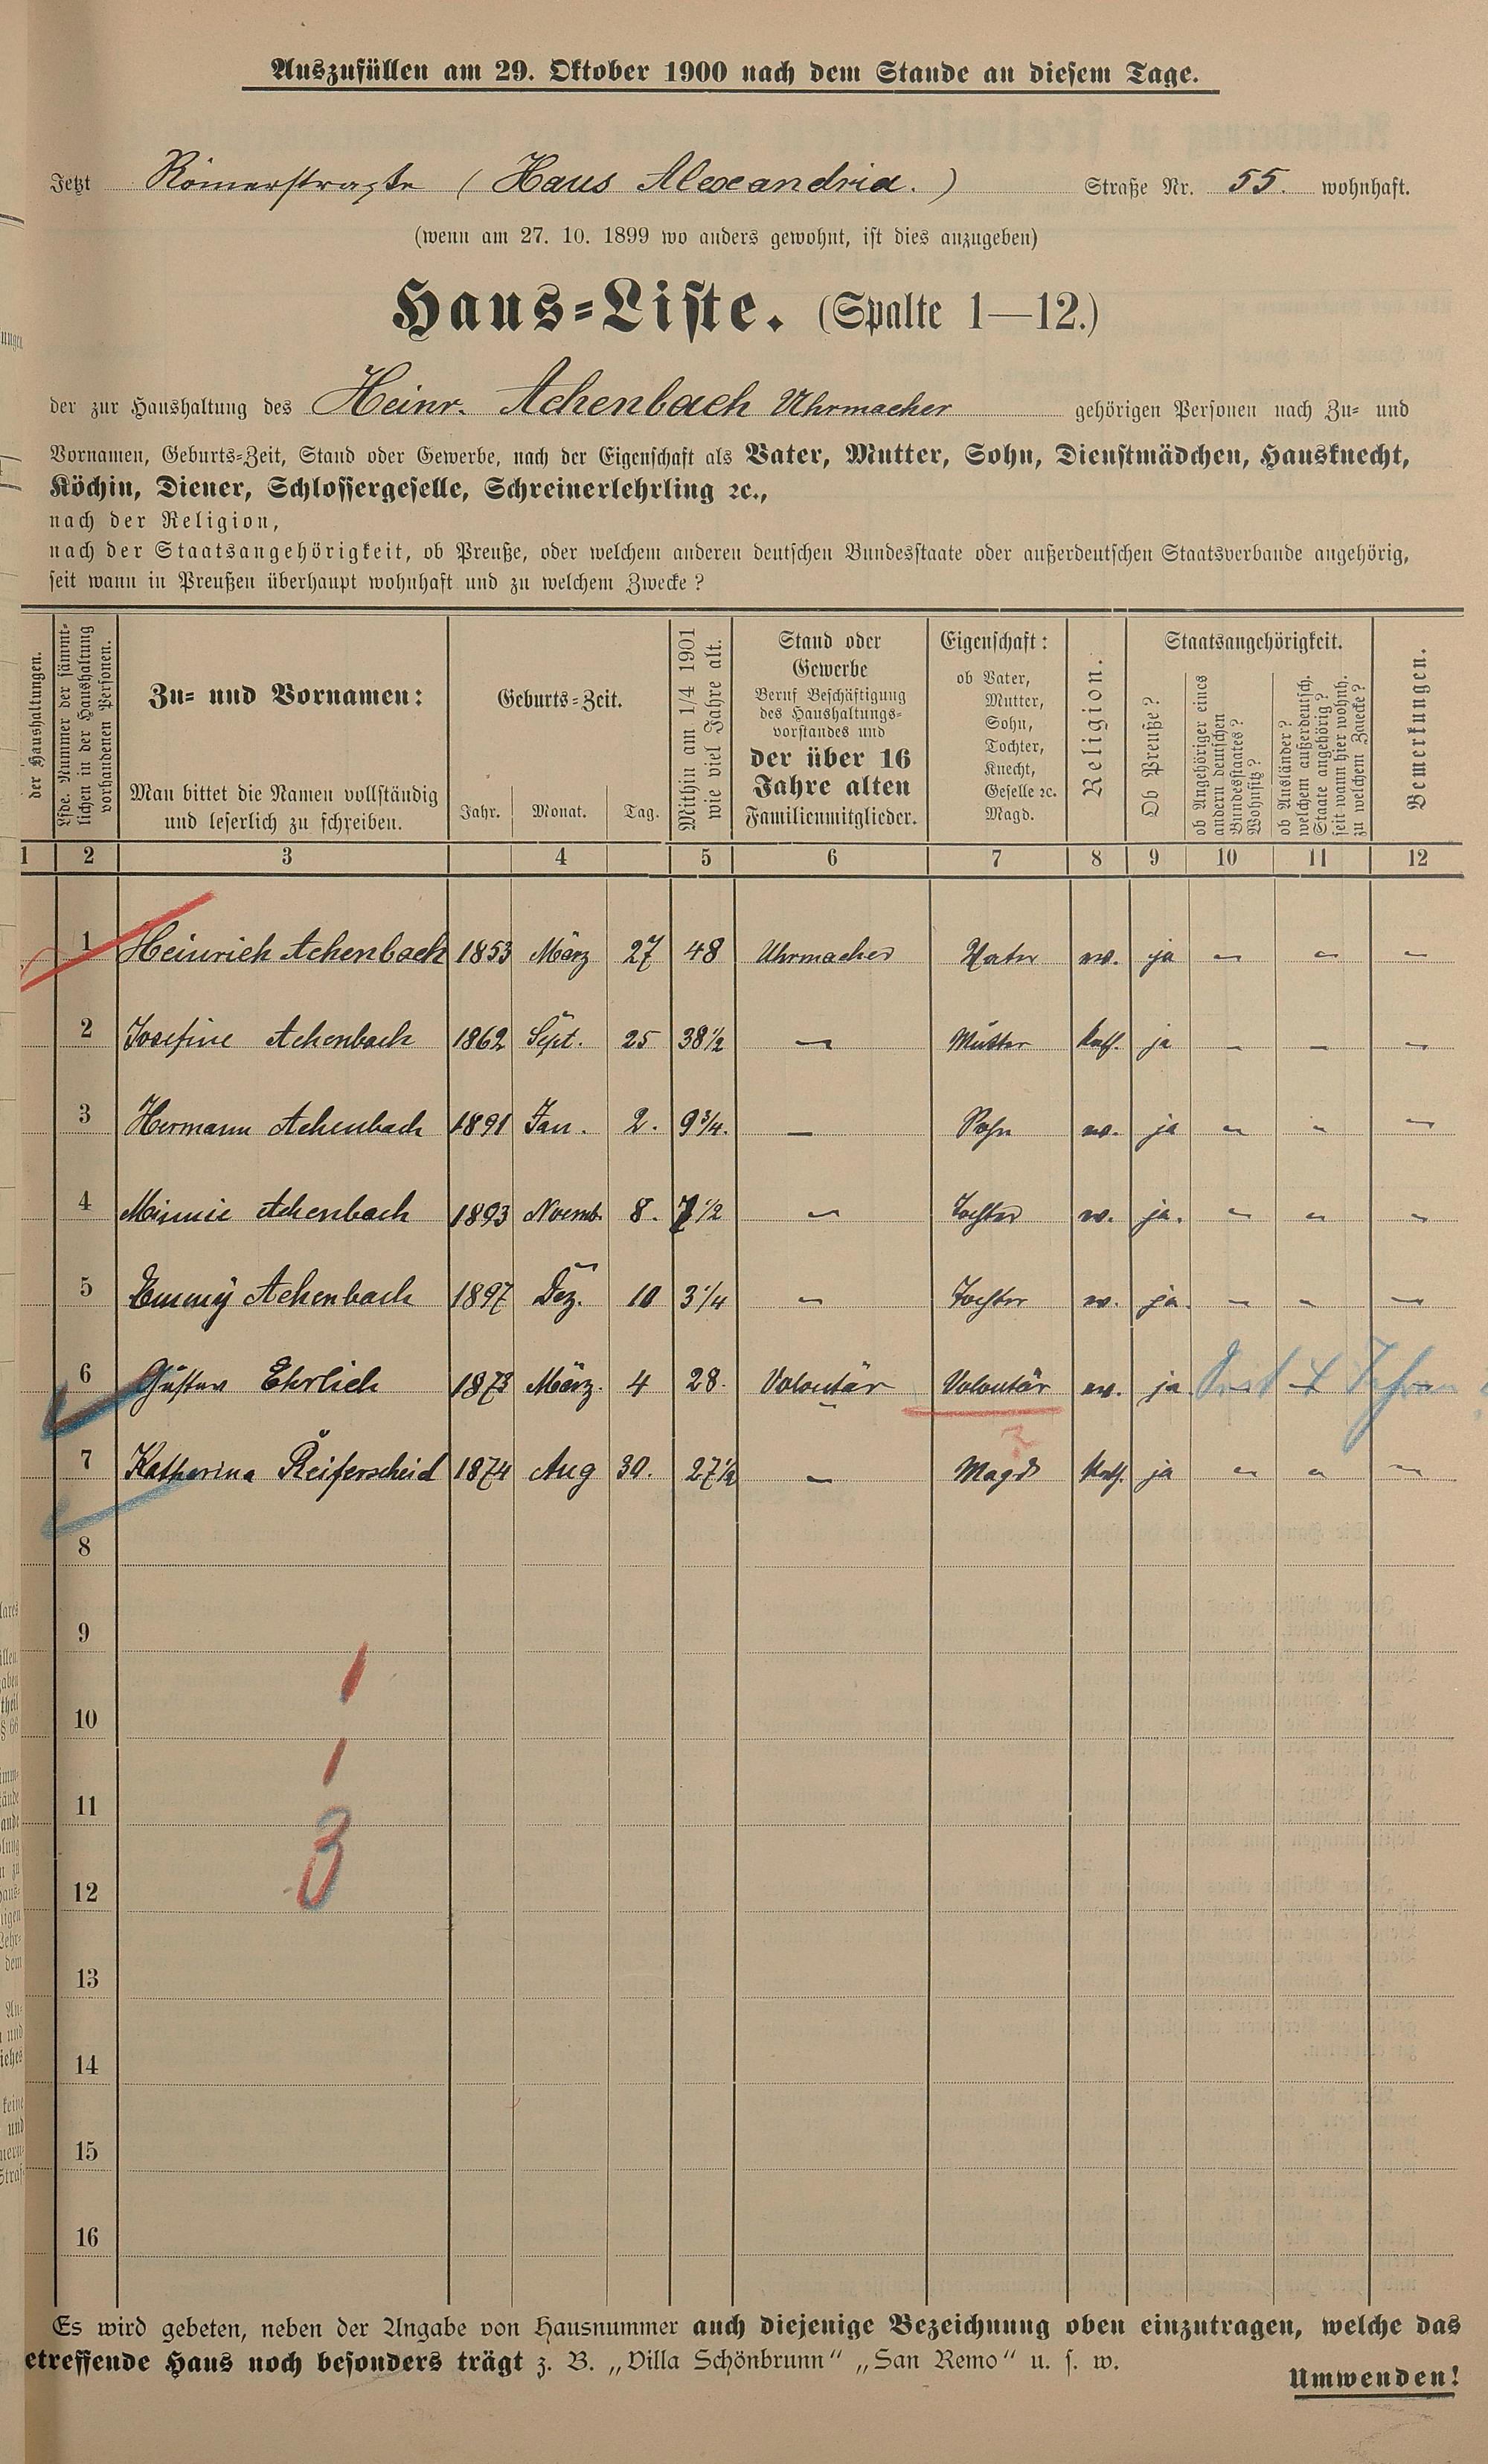 Auszufüllen am 29. Oktober 1900 nach dem Stande an diesem Tage.
Jetzt Römerstraße (Haus Alexandria.) Straße Nr. 55. wohnhaft.
(wenn am 27. 10. 1899 wo anders gewohnt, ist dies anzugeben)
Haus-Liste. (Spalte 1—12.)
der zur Haushaltung des Heinr. Achenbach Uhrmacher gehörigen Personen nach Zu- und
Vornamen, Geburts-Zeit, Stand oder Gewerbe, nach der Eigenschaft als Vater, Mutter, Sohn, Dienstmädchen, Hausknecht,
Köchin, Diener, Schlossergeselle, Schreinerlehrling ꝛc.,
nach der Religion,
nach der Staatsangehörigkeit, ob Preuße, oder welchem anderen deutschen Bundesstaate oder außerdeutschen Staatsverbande angehörig,
seit wann in Preußen überhaupt wohnhaft und zu welchem Zwecke?
der Haushaltungen.
Lfde. Nummer der sämmt-
lichen in der Haushaltung
vorhandenen Personen.
Zu- und Vornamen:
Man bittet die Namen vollständig
und leserlich zu schreiben.
Geburts-Zeit.
Jahr. Monat. Tag.
Mithin am 1/4 1901
wie viel Jahre alt.
Stand oder
Gewerbe
Beruf Beschäftigung
des Haushaltungs-
vorstandes und
der über 16
Jahre alten
Familienmitglieder.
Eigenschaft:
ob Vater,
Mutter,
Sohn,
Tochter,
Knecht,
Geselle ꝛc.
Magd.
Religion.
Staatsangehörigkeit.
Ob Preuße?
ob Angehöriger eines
andern deutschen
Bundesstaates?
Wohnsitz?
ob Ausländer?
welchem außerdeutsch.
Staate angehörig?
seit wann hier wohnh.
zu welchem Zwecke?
Bemerkungen.
1 2 3 4 5 6 7 8 9 10 11 12
1 Heinrich Achenbach 1853 März 27 48 Uhrmacher Vater ev. ja — — —
2 Josefine Achenbach 1862 Sept. 25 38 1/2 — Mutter kath. ja — — —
3 Hermann Achenbach 1891 Jan. 2. 9 3/4. — Sohn ev. ja — — —
4 Minnie Achenbach 1893 Novemb. 8. 7 1/2 — Tochter ev. ja. — — —
5 Emmy Achenbach 1897 Dez. 10 3 1/4 — Tochter ev. ja. — — —
6 Gustav Ehrlich 1873 März. 4 28. Volontär Volontär ev. ja
7 Katharina Reiferscheid 1874 Aug 30. 27 1/2 — Magd kath. ja — — —
8
9
10
11
12
13
14
15
16
Es wird gebeten, neben der Angabe von Hausnummer auch diejenige Bezeichnung oben einzutragen, welche das
etreffende Haus noch besonders trägt z. B. „Villa Schönbrunn“ „San Remo“ u. s. w.
Umwenden!